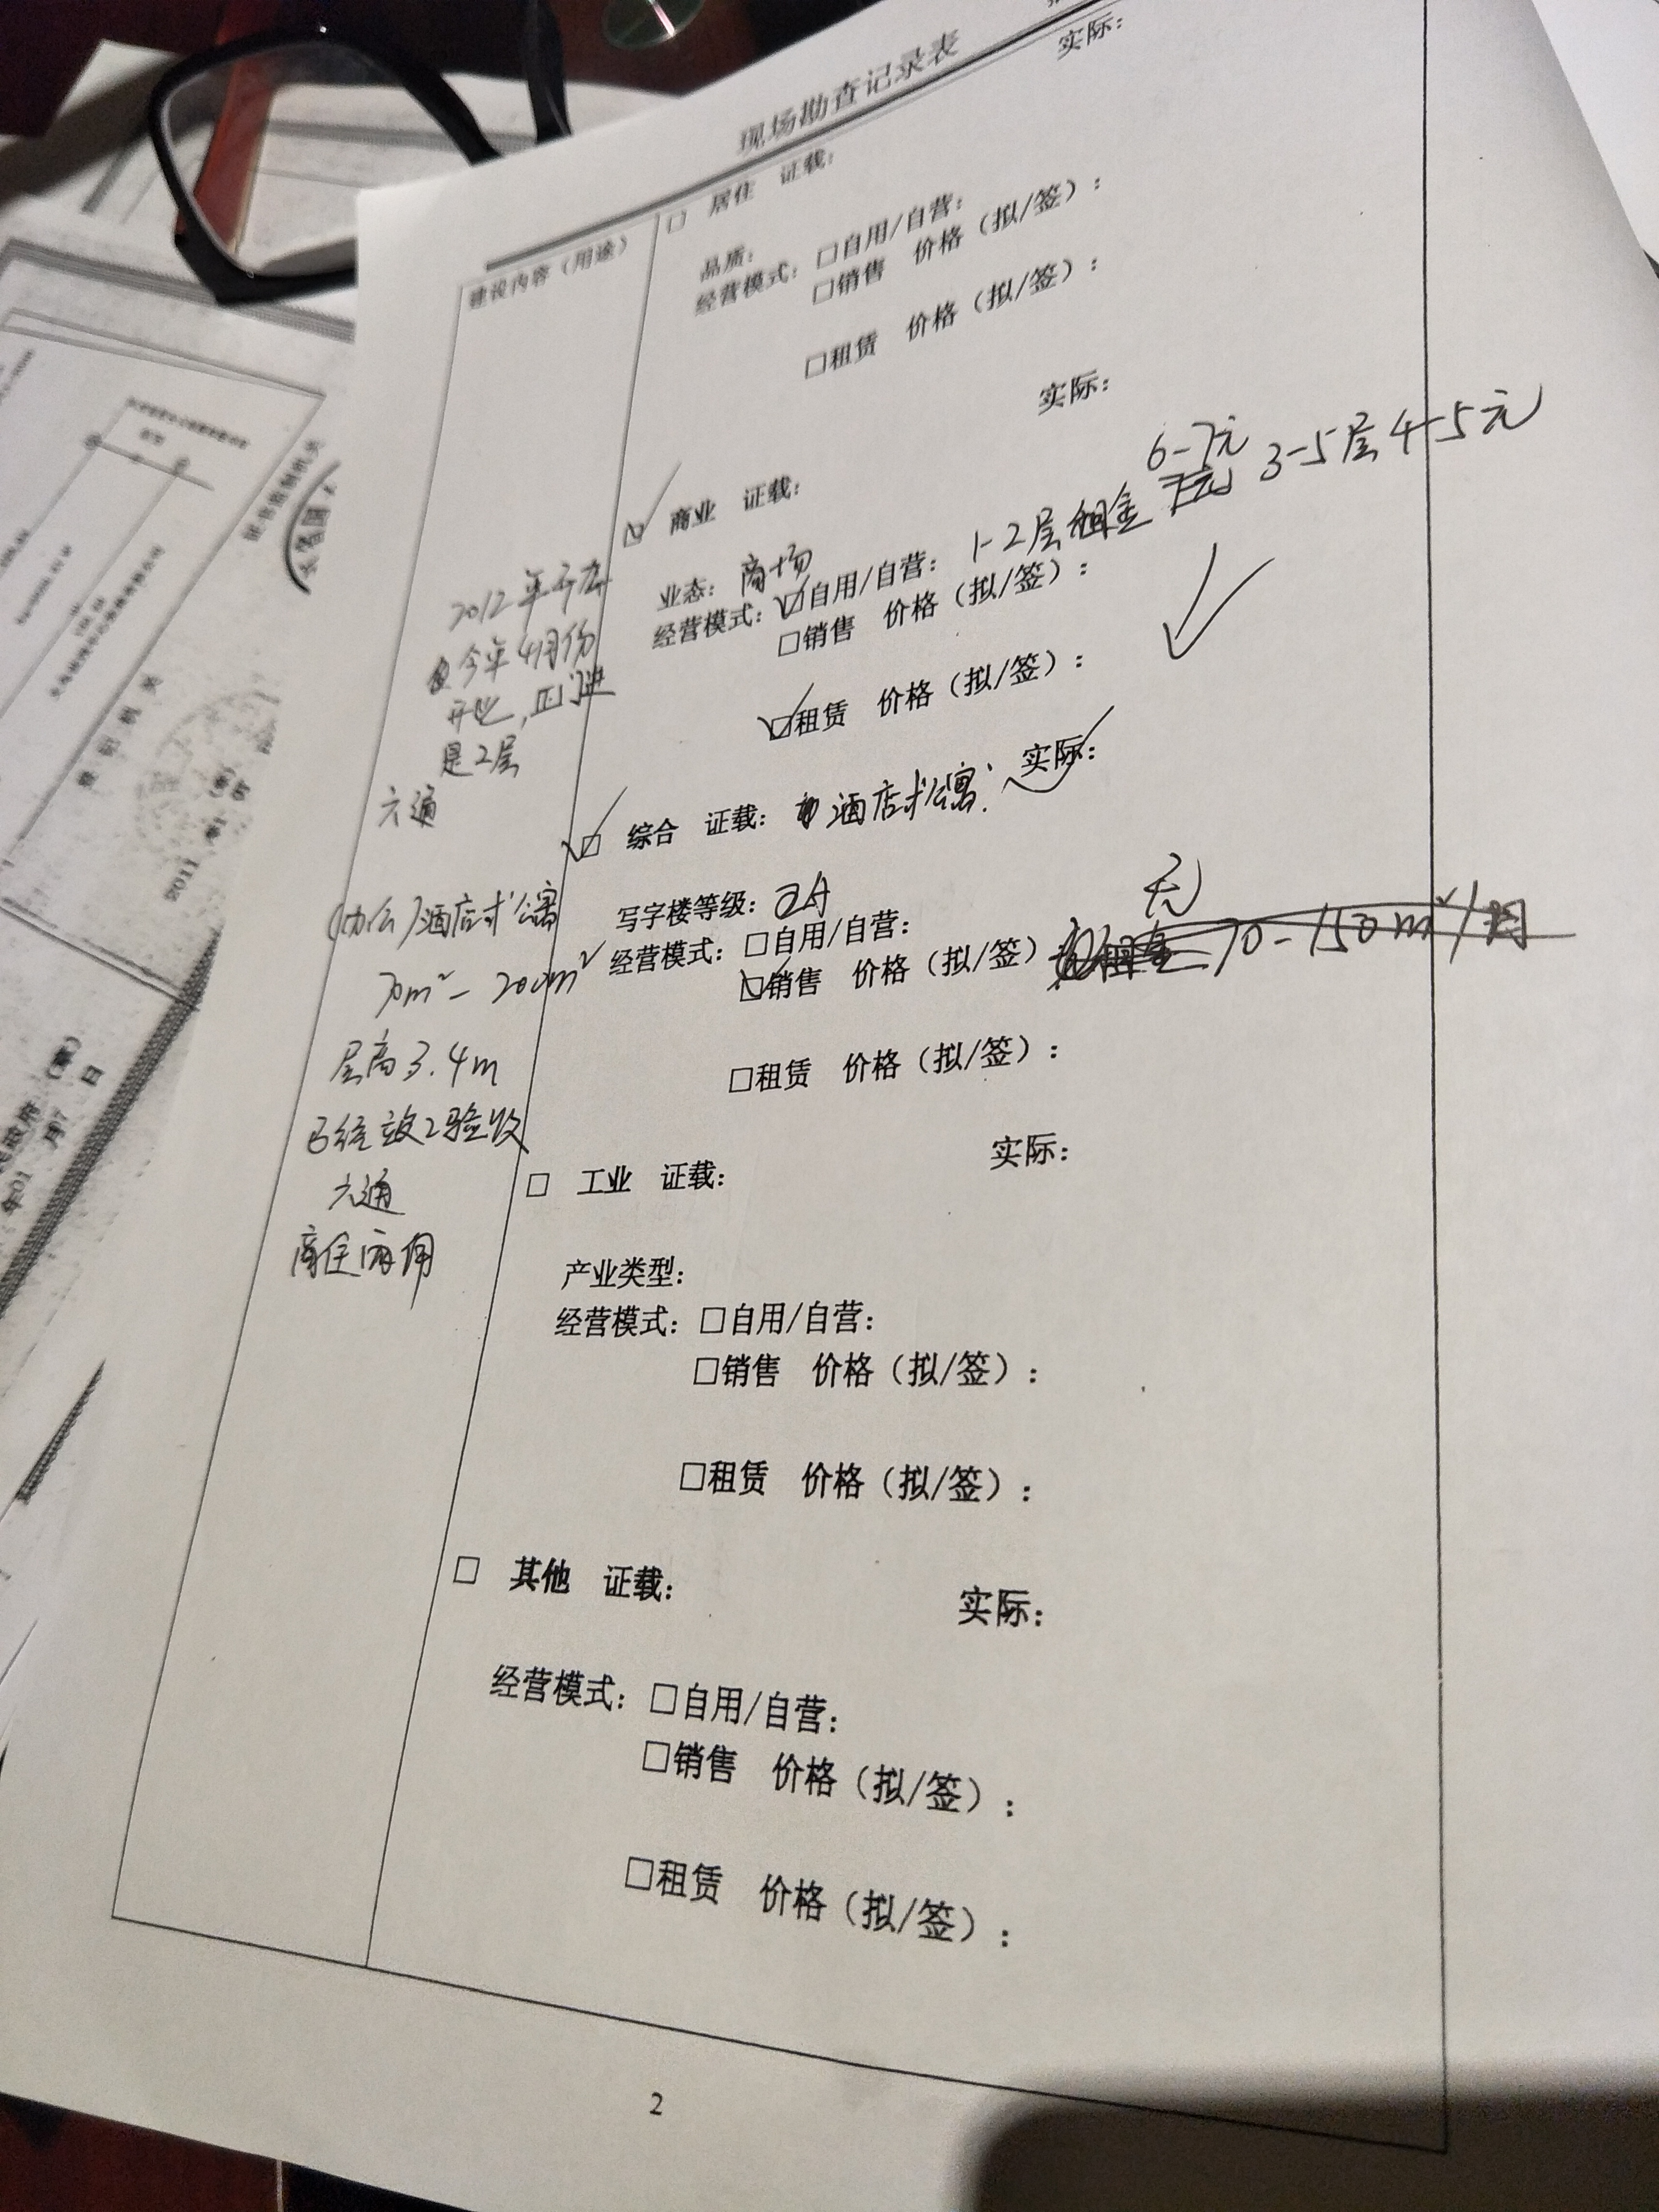 现场勘查记录表
建设内容（用途）
□ 居住 证载： 实际：
品质：
经营模式：□自用/自营：
□销售 价格（拟/签）：
□租赁 价格（拟/签）：
☑ 商业 证载： 实际：
业态：商场
6-7元
经营模式：☑自用/自营：1-2层租金 3-5层4-5元
□销售 价格（拟/签）：
☑租赁 价格（拟/签）：
2012年开
今年4月份
开业，正门进
是2层
六通
☑ 综合 证载：酒店式公寓 实际：
写字楼等级：
经营模式：□自用/自营：
无
☑销售 价格（拟/签） 70-150m²/
□租赁 价格（拟/签）：
（办公）酒店式公寓
70m²-200m²
层高3.4m
已经竣工验收
六通
商住两用
□ 工业 证载： 实际：
产业类型：
经营模式：□自用/自营：
□销售 价格（拟/签）：
□租赁 价格（拟/签）：
□ 其他 证载： 实际：
经营模式：□自用/自营：
□销售 价格（拟/签）：
□租赁 价格（拟/签）：
2